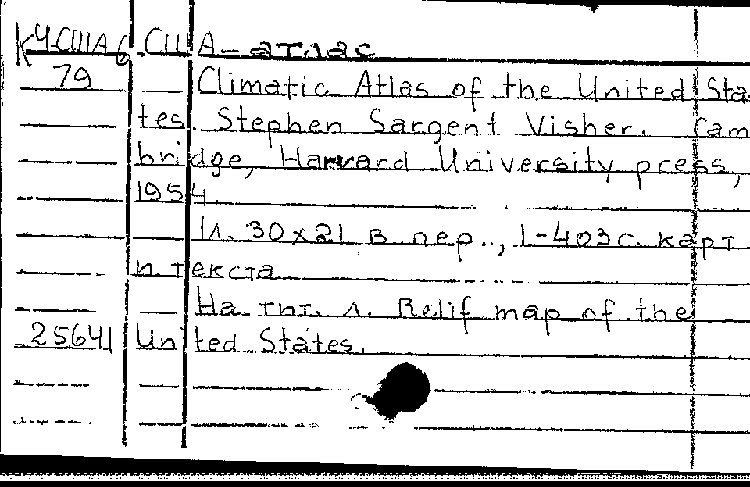 К Ч-США б США - атлас
79 Climatic Atlas of the United Sta-
tes. Stephen Sargent Visher. Cam
bridge, Harvard University press,
1954.
1л. 30x21 в пер.., 1-403с. карт
и текста
На тит. л. Relif map of the
25641 United States.